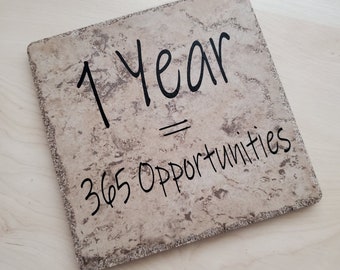 1 Year
=
365 Opportunities